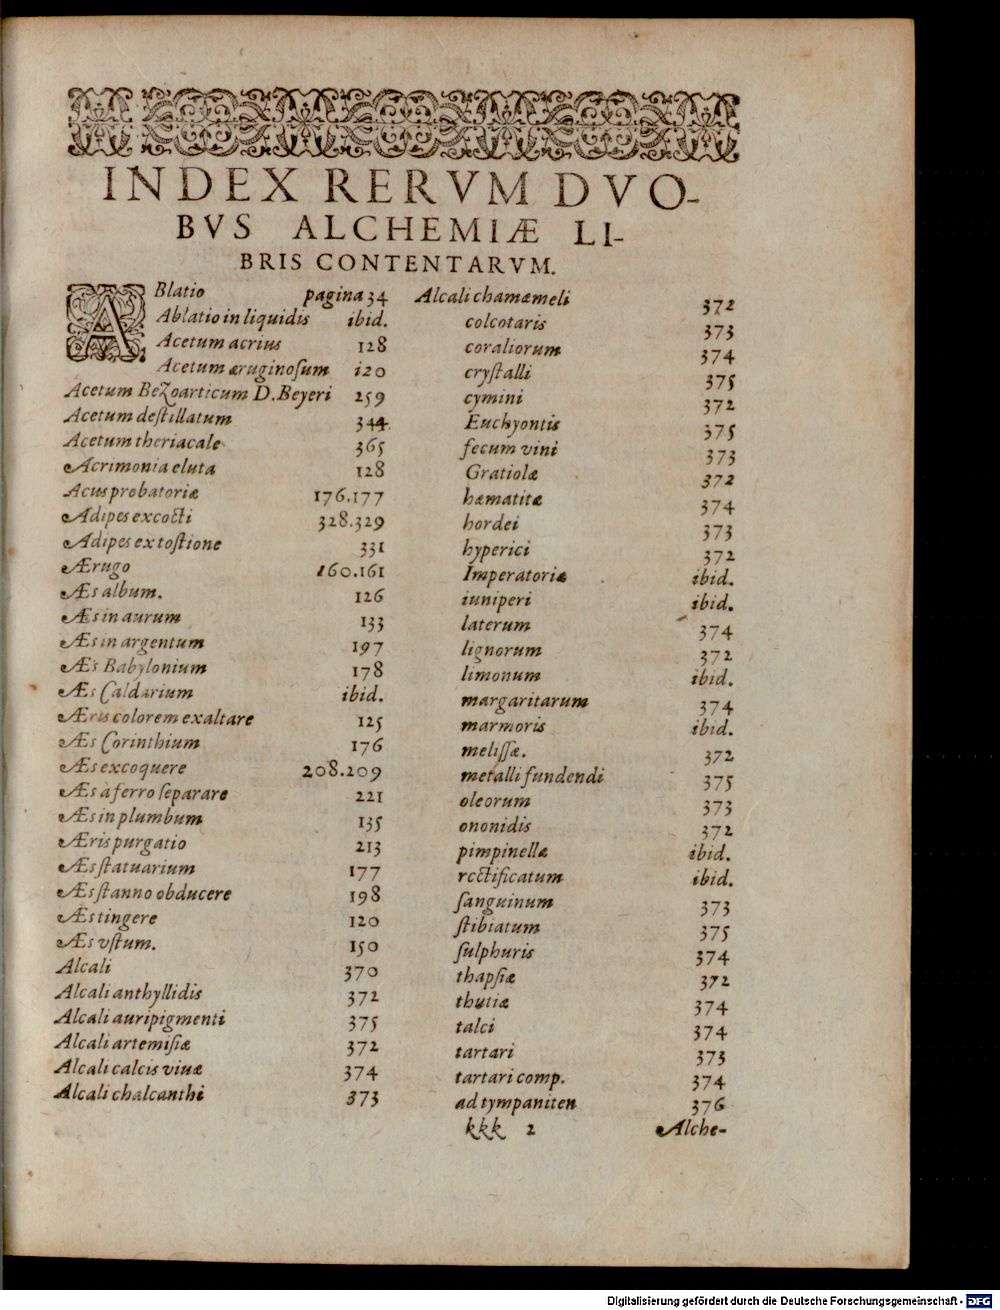 INDEX RERVM DVO-
BVS ALCHEMIÆ LI-
BRIS CONTENTARVM.
ABlatio pagina 34
Ablatio in liquidis ibid.
Acetum acrius 128
Acetum æruginoſum 120
Acetum BeZoarticum D. Beyeri 259
Acetum deſtillatum 344
Acetum theriacale 365
Acrimonia eluta 128
Acus probatoriæ 176.177
Adipes excocti 328.329
Adipes ex toſtione 331
Ærugo 160.161
Æs album. 126
Æs in aurum 133
Æs in argentum 197
Æs Babylonium 178
Æs Caldarium ibid.
Æris colorem exaltare 125
Æs Corinthium 176
Æs excoquere 208.209
Æs à ferro ſeparare 221
Æs in plumbum 135
Æris purgatio 213
Æs ſtatuarium 177
Æs ſtanno obducere 198
Æs tingere 120
Æs vſtum. 150
Alcali 370
Alcali anthyllidis 372
Alcali auripigmenti 375
Alcali artemiſiæ 372
Alcali calcis viuæ 374
Alcali chalcanthi 373
Alcali chamæmeli 372
colcotaris 373
coraliorum 374
cryſtalli 375
cymini 372
Euchyontis 375
fecum vini 373
Gratiolæ 372
hæmatitæ 374
hordei 373
hyperici 372
Imperatoriæ ibid.
iuniperi ibid.
laterum 374
lignorum 372
limonum ibid.
margaritarum 374
marmoris ibid.
meliſſæ. 372
metalli fundendi 375
oleorum 373
ononidis 372
pimpinellæ ibid.
rectificatum ibid.
ſanguinum 373
ſtibiatum 375
ſulphuris 374
thapſiæ 372
thutiæ 374
talci 374
tartari 373
tartari comp. 374
ad tympaniten 376
kkk 2 Alche-
Digitalisierung gefördert durch die Deutsche Forschungsgemeinschaft - DFG